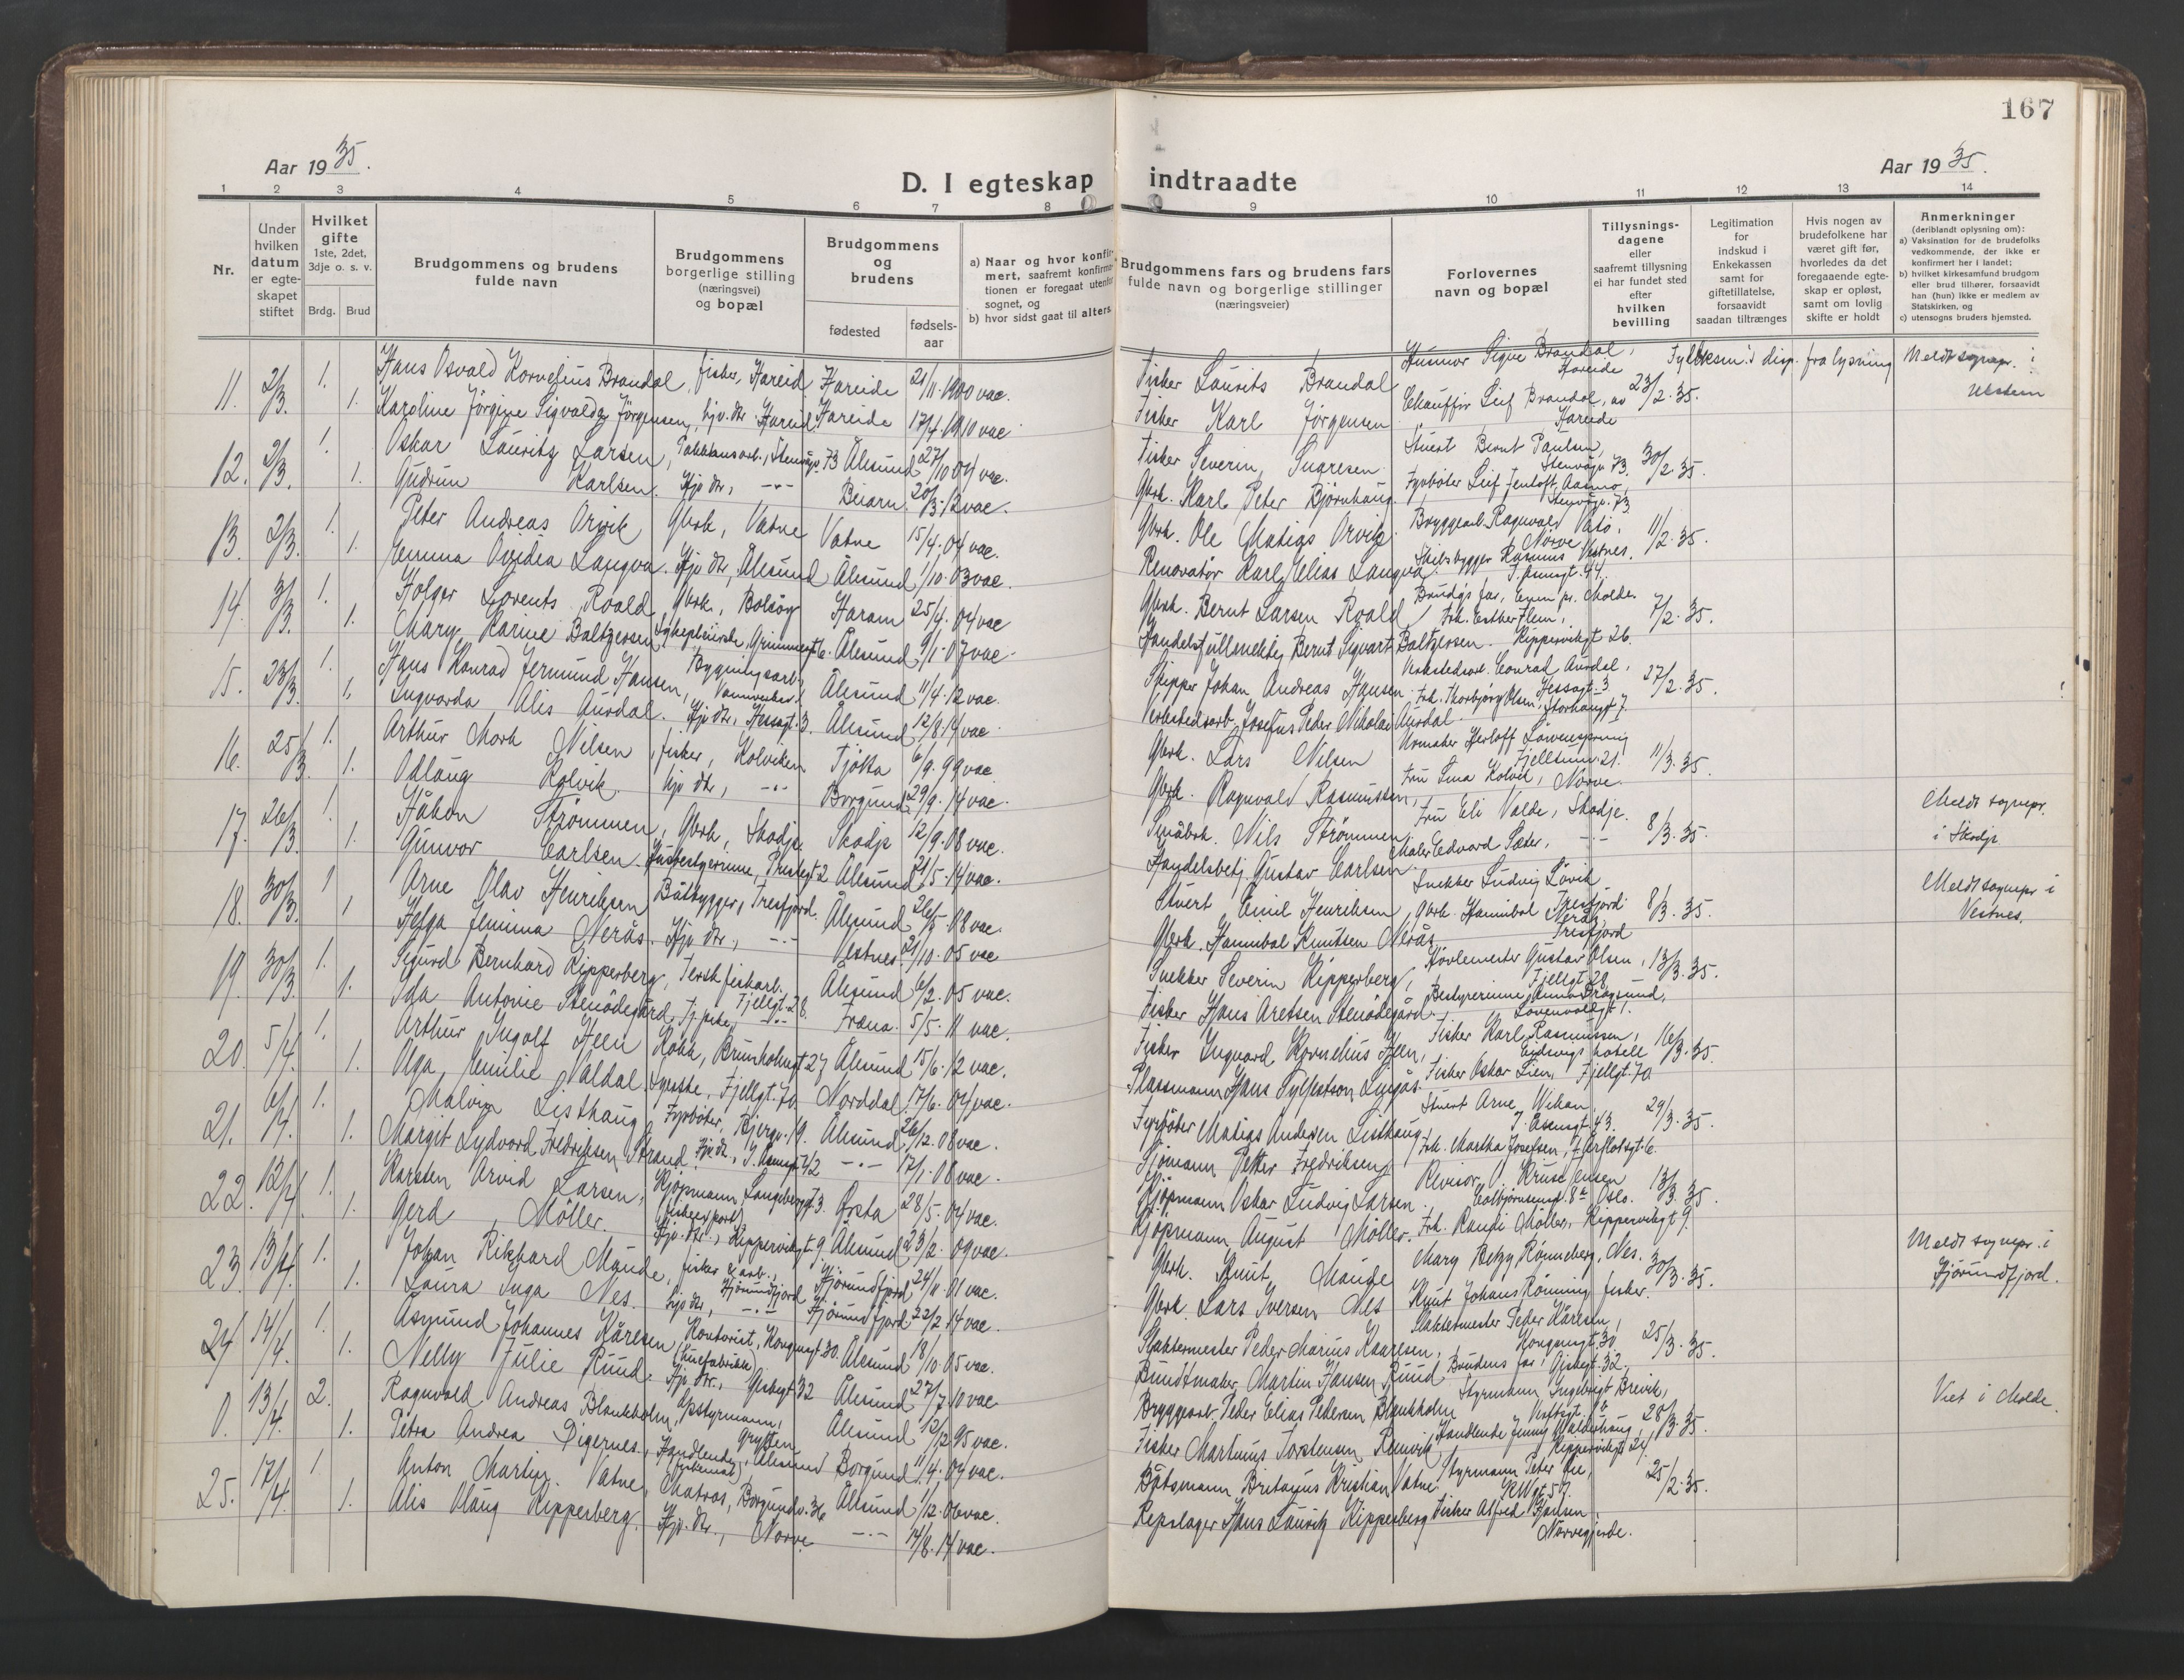 167
Aar 1935.
D. I egteskap indtraadte
Aar 1935.
1 2 3 4 5 6 7 8 9 10 11 12 13 14
Nr.
Under hvilken datum er egteskapet stiftet
Hvilket gifte 1ste, 2det, 3dje o. s. v.
Brdg. Brud
Brudgommens og brudens fulde navn
Brudgommens borgerlige stilling (næringsvei) og bopæl
Brudgommens og brudens
fødested
fødselsaar
a) Naar og hvor konfirmert, saafremt konfirmationen er foregaat utenfor sognet, og
b) hvor sidst gaat til alters
Brudgommens fars og brudens fars fulde navn og borgerlige stillinger (næringsveier)
Forlovernes navn og bopæl
Tillysningsdagene eller saafremt tillysning ei har fundet sted efter hvilken bevilling
Legitimation for indskud i Enkekassen samt for giftetillatelse, forsaavidt saadan tiltrænges
Hvis nogen av brudefolkene har været gift før, hvorledes da det foregaaende egteskap er opløst, samt om lovlig skifte er holdt
Anmerkninger (deriblandt oplysning om):
a) Vaksination for de brudefolks vedkommende, der ikke er konfirmert her i landet;
b) hvilket kirkesamfund brudgom eller brud tilhører, forsaavidt han (hun) ikke er medlem av Statskirken, og
c) utensogns bruders hjemsted.
11. 2/3. 1. Hans Osvald Kornelius Brandal, fisker, Hareid Hareide 21/11.1900 vac. Fisker Laurits Brandal Sigve Brandal, Hareide Fylkesm.'s disp. fra lysning Meldt sognepr. i Ulstein
1. Karoline Jørgine Sigvalda Jørgensen, hjv. dtr. Hareid Hareide 17/4.1910 vac Fisker Karl Jørgensen Chauffør Leif Brandal, Hareide 23/2.35.
12. 2/3. 1. Oskar Lauritz Larsen, Pakkhusarb., Stenvågv. 73 Ålesund 27/10 04 vac. Fisker Severin Stuert Bernt Paulsen, Stenvågv. 73.
1. Gudrun Karlsen. Hjv dtr, -"- Beiarn. 20/3.12 vac. Gbrk. Karl Peter Bjørnhaug Fyrbøter Leif Aasmo, Stenvågv. 73 30/2.35.
13. 2/3. 1. Peter Andreas Orvik Gbrk, Vatne Vatne 15/4.04 vac. Gbrk. Ole Matias Orvik Bryggearb. Ragnvald Vatø, Nørve
1. Emma Ovidea Langva. Hjv dtr, Ålesund Ålesund 1/10.03 vac. Renovatør Karl Elias Langva. Skibsbygger Rasmus Vestnes. J. Aasengt. 44. 11/2.35.
14. 3/3. 1. Holger Lorents Roald Gbrk., Bolsøy Haram 25/4.04 vac Gbrk. Bernt Larsen Roald Brudgs far, pr. Molde.
1. Mary Karine Baltzersen Sykepleierske, Grimmergt 6. Ålesund 9/1.07 vac. Handelsfullmektig Bernt Sigvart Baltzersen. Frk. Esther Flem, Kippervikgt 26. 7/2.35.
15. 23/3. 1. Hans Konrad Jermund Hansen, Bygningsarb. Ålesund 11/4.12 vac. Skipper Johan Andreas Hansen. Verkstedsarb. Conrad Aurdal, Hessagt. 3
1. Ingvarda Alis Aurdal. Hjv dtr, Hessagt. 3. Ålesund 12/8 14 vac. Verkstedsarb. Josefus Peder Nikolai Aurdal. Frk. Thorbjørg Olsen, Storhaugt 7. 27/2.35.
16. 25/3. 1. Arthur Mork Nilsen, fisker, Kolviken Tjøtta 6/9.99 vac. Gbrk. Lars Nilsen Urmaker Herloff Løvenspring Fjelltun 21.
1. Odlaug Kolvik. hjv dtr, -"- Borgund 29/9.14 vac. Gbrk. Ragnvald Rasmussen, Fru Sina Kolvik, Nørve. 11/3.35.
17. 26/3. 1. Håkon Strømmen, Gbrk, Skodje Skodje 12/9.08 vac. Småbrk. Nils Strømmen Fru Eli Valde, Skodje. Meldt sognepr. i Skodje
1. Gunvor Carlsen. Husbestyrerinne, Prestegt 2 Ålesund 21/5.14 vac. Handelsbetj. Gustav Carlsen. Maler Edvard Sæter, -"- 8/3.35.
18. 30/3. 1 Arne Olav Henriksen Båtbygger, Tresfjord. Ålesund 26/5 08 vac. Stuert Emil Henriksen, Snekker Ludvig Løvik Tresfjord Meldt sognepr. i Vestnes.
1 Helga Jemima Nerås. Hjv dtr, -"- Vestnes 21/10.05 vac Gbrk. Hannibal Knutsen Nerås Gbrk. Hannibal Nerås Tresfjord 8/3.35.
19. 30/3. 1. Sigurd Bernhard Kipperberg, Ferskfiskarb. Fjellgt. 28 Ålesund 6/2.05 vac. Snekker Severin Kipperberg, Høvlemester Gustav Olsen, Fjellgt. 28
1. Ida Antonie Stenødegård. Tj.pike, -"- Fræna. 5/5.11 vac. Fisker Hans Aretsen Stenødegård. Bestyrerinne Anna Dragsund, Løvenvoldgt 1. 13/3.35.
20. 5/4. 1. Arthur Ingolf Heen Kokk, Brunholmgt 27 Ålesund 15/6.12 vac. Fisker Ingvard Kornelius Heen, Fisker Karl Rasmussen, Eidsvigs hotell
1. Olga Emilie Valdal. Syerske, Fjellgt. 70 Norddal. 17/6.04 vac. Plassmann Hans Sylfestson Lingås. Fisker Oskar Lien, Fjellgt. 70. 16/3.35.
21. 6/4. 1. Malvin Listhaug Fyrbøter, Bjergv. 19. Ålesund, 26/12.08 vac. Fyrbøter Matias Andersen Listhaug, Stuert Arne Wekan, J. Aasengt. 43.
1. Margit Lydvord Fredriksen Strand. Hjv dtr, J. Aasengt 42 -"- 17/1.08 vac. Sjømann Petter Fredriksen, Frk. Martha Josefsen, 29/3.35.
22. 12/4. 1. Karsten Arvid Larsen, Kjøpmann, Langebergt 3. (fiskeexport) Ørsta 28/5.04 vac. Kjøpmann Oskar Ludvig Larsen. Revisor O. Kruse Jensen Colbjørnsensg. 8 Oslo.
1. Gerd Møller. Hjv. dtr., Kippervikgt. 9. Ålesund 23/2.09 vac. Kjøpmann August Møller. Frk. Randi Møller, Kippervikgt 9. 13/3.35.
23. 13/4. 1. Johan Rikhard Maude, fisker & arb., Hjørundfjord Hjørundfjord 24/11 01 vac. Gbrk. Knut Maude Mary Betzy Rønneberg, Nes. Meldt sognepr. i Hjørundfjord.
1. Laura Inga Nes. hjv dtr, -"- Hjørundfjord 22/2 14 vac. Gbrk. Lars Iversen Nes Knut Johans Rønning, fisker. 30/3.35.
24. 14/4. 1. Asmund Johannes Kåresen, Kontorist, Kongensgt 30. Ålesund 18/10.05 vac. Slaktermester Peder Marius Kaaresen, Slaktermester Peder Kåresen, Kongensgt. 30
1. Nelly Julie Ruud. Hjv dtr., Gisbegt 32 Ålesund 27/7 10 vac. Bundtmaker Martin Hansen Ruud Brudens far, Gisbegt. 32. 25/3.35.
0. 13/4. 2. Ragnvald Andreas Blankholm, styrmann, Grytten Ålesund 12/12 95 vac. Bryggearb. Peder Elias Pedersen Blankholm Styrmann Ingebrigt Breivik, Viet i Molde.
1. Petra Andrea Digernes. Handlende, Ålesund Borgund 11/4.04 vac. Fisker Martinus Torstensen Handlende Jenny Kippervikgt 24 28/3.35.
25. 17/4. 1 Anton Martin Vatne, Matros, Borgundv. 36 Ålesund 1/12.06 vac. Båtsmann Britanus Kristian Vatne. Styrmann Peter
1. Alis Olaug Kipperberg. Hjv. dtr., Nørve -"- 14/8.14 vac. Repslager Hans Lauritz Kipperberg Fisker Alfred Hansen, Nørvegjerde. 25/2.35.